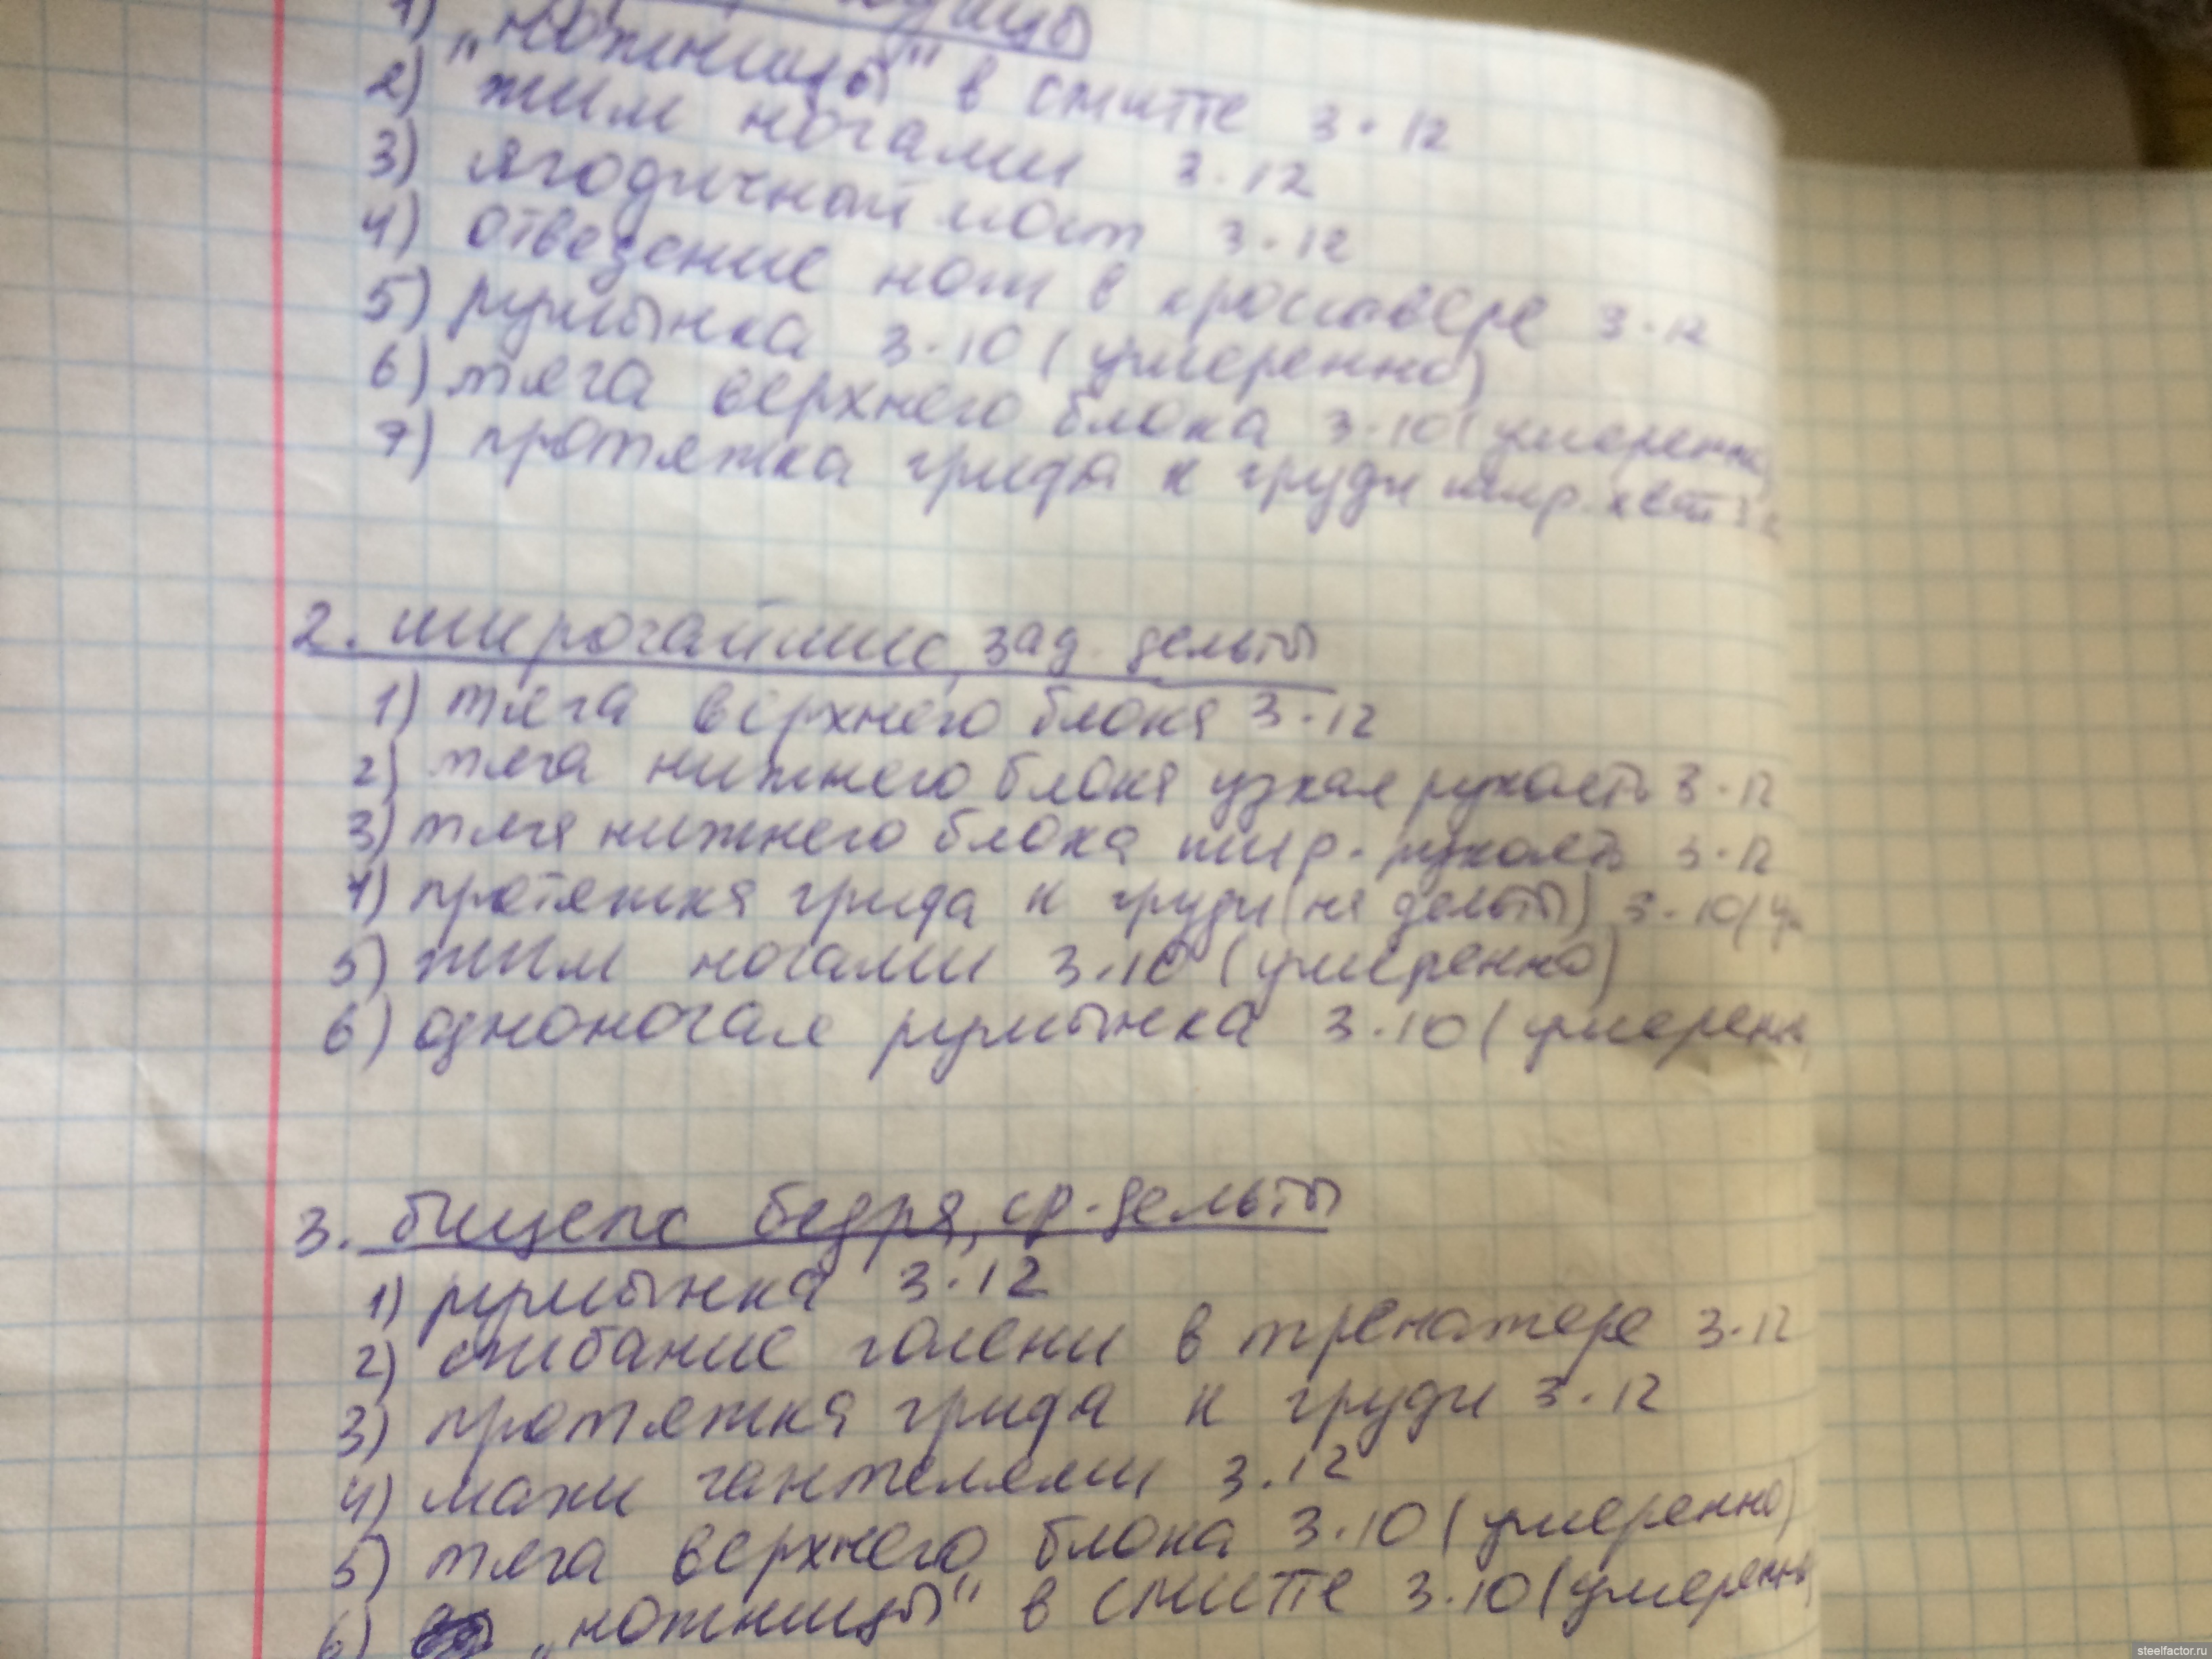 1) „ножницы" в смитте 3·12
2) жим ногами 3·12
3) ягодичный мост 3·12
4) отведение ног в кроссовере 3·12
5) румынка 3·10 (умеренно)
6) тяга верхнего блока 3·10 (умеренно)
7) протяжка грифа к груди шир. хват 3
2. широчайшие, зад. дельты
1) тяга верхнего блока 3·12
2) тяга нижнего блока узкая рукоять 3·12
3) тяга нижнего блока шир. рукоять 3·12
4) протяжка грифа к груди (на дельты) 3·10 (ум
5) жим ногами 3·10 (умеренно)
6) одноногая румынка 3·10 (умеренн
3. бицепс бедра, ср. дельты
1) румынка 3·12
2) сгибание голени в тренажере 3·12
3) протяжка грифа к груди 3·12
4) махи гантелями 3·12
5) тяга верхнего блока 3·10 (умеренно)
6) „ножницы" в смитте 3·10 (умеренно
steelfactor.ru